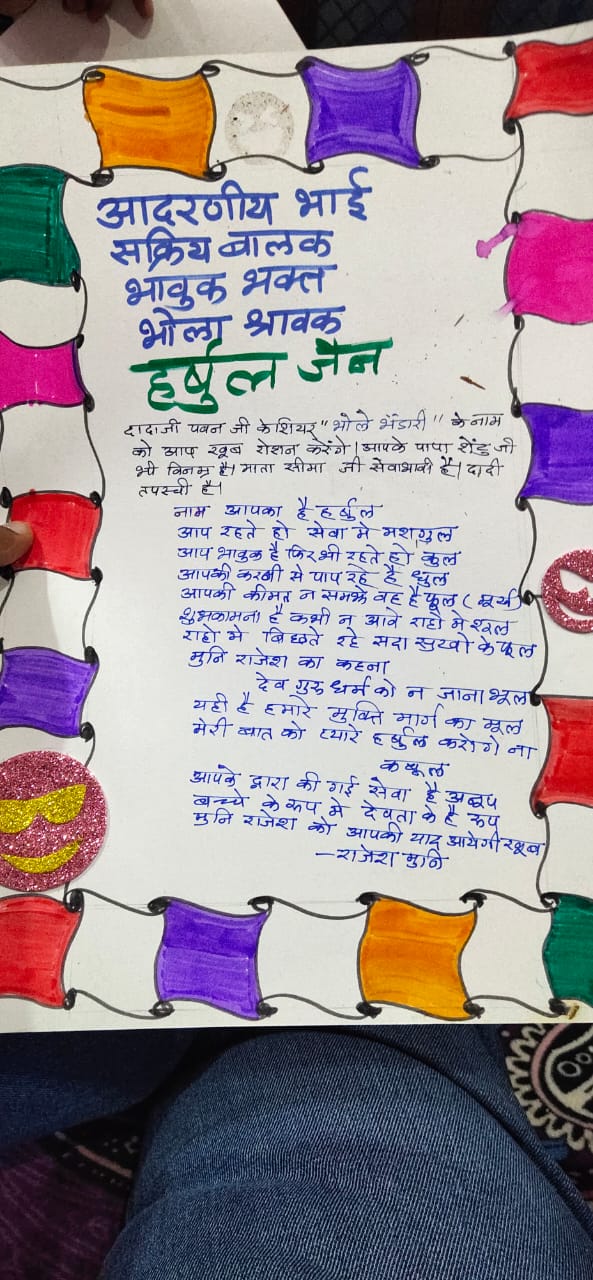 आदरणीय भाई
सक्रिय बालक
भावुक भक्त
भोला श्रावक
हर्षुल जैन
दादाजी पवन जी केशियर "भोले भंडारी" के नाम
को आप खूब रोशन करेंगे। आपके पापा शेंटु जी
भी विनम्र है। माता सीमा जी सेवाभावी है। दादी
तपस्वी है।
नाम आपका है हर्षुल
आप रहते हो सेवा मे मशगुल
आप भावुक है फिर भी रहते हो कुल
आपकी करणी से पाप रहे है धुल
आपकी कीमत न समझे वह है फूल (मूर्ख)
शुभकामना है कभी न आवे राहो मे शूल
राहो मे बिछते रहे सदा सुखो के फूल
मुनि राजेश का कहना
देव गुरु धर्म को न जाना भूल
यही है हमारे मुक्ति मार्ग का मूल
मेरी बात को प्यारे हर्षुल करोगे ना
कबूल
आपके द्वारा की गई सेवा है अनूप
बच्चे के रूप मे देवता के है रूप
मुनि राजेश को आपकी याद आयेगी खूब
–राजेश मुनि